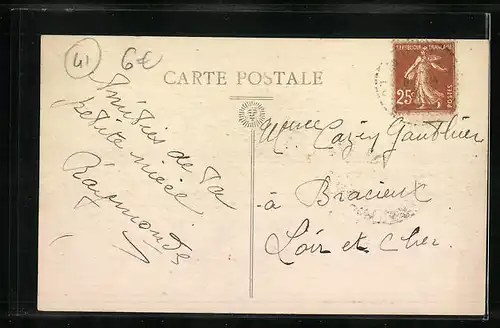 41
6€
CARTE POSTALE
REPUBLIQUE FRANCAISE
25c
POSTES
Amitiés de ta
petite nièce
Raymonde
Gauthier
à Bracieux
Loir et Cher